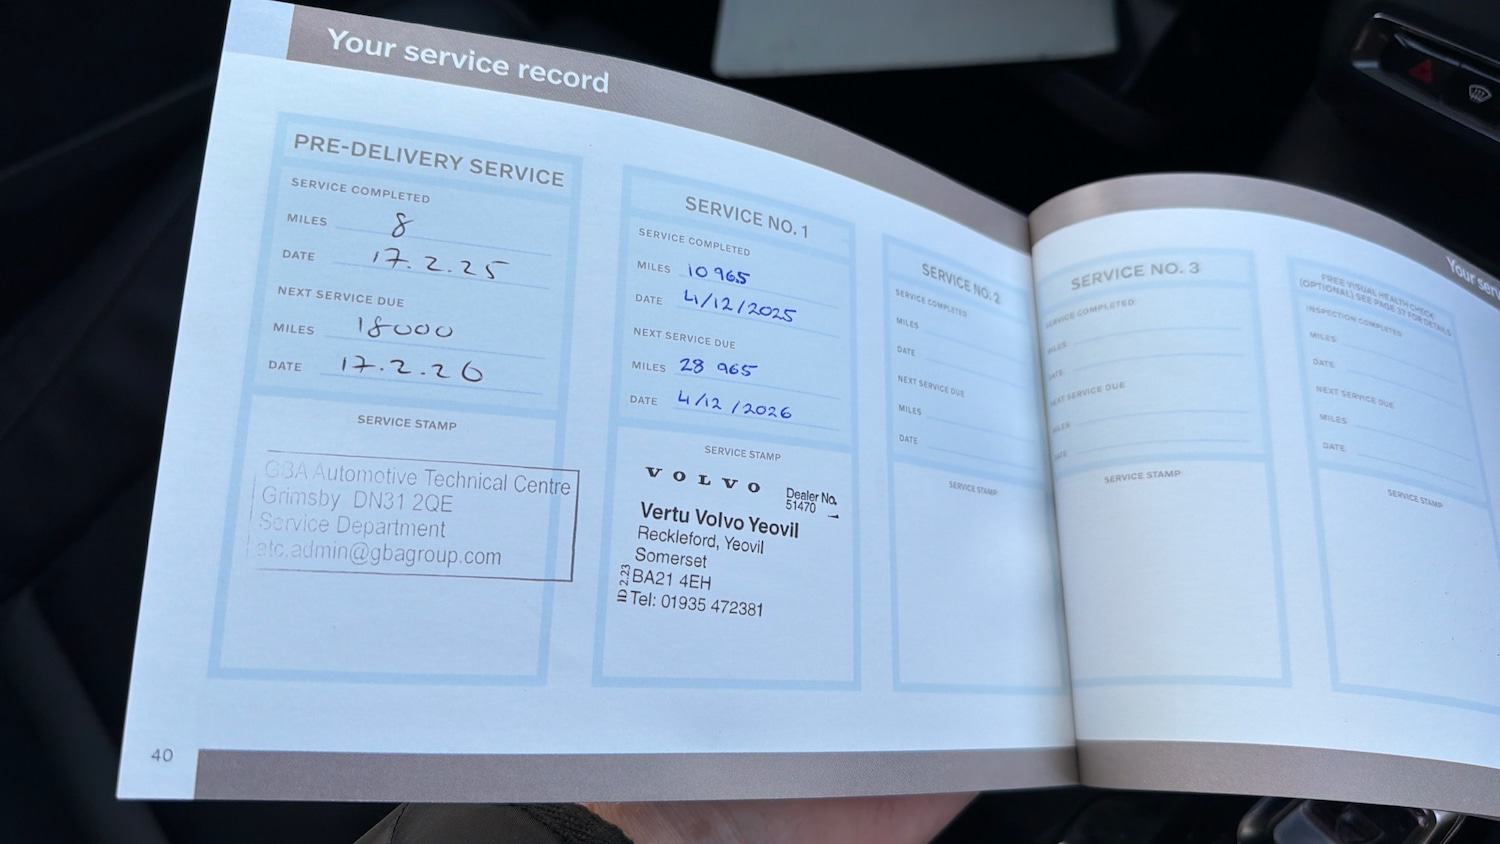 Your service record
PRE-DELIVERY SERVICE
SERVICE COMPLETED
MILES 8
DATE 17.2.25
NEXT SERVICE DUE
MILES 18000
DATE 17.2.26
SERVICE STAMP
GBA Automotive Technical Centre
Grimsby DN31 2QE
Service Department
atc.admin@gbagroup.com
SERVICE NO. 1
SERVICE COMPLETED
MILES 10 965
DATE 4/12/2025
NEXT SERVICE DUE
MILES 28 965
DATE 4/12/2026
SERVICE STAMP
VOLVO
Dealer No.
51470
Vertu Volvo Yeovil
Reckleford, Yeovil
Somerset
BA21 4EH
Tel: 01935 472381
ID 2.23
SERVICE NO. 2
SERVICE COMPLETED
MILES
DATE
NEXT SERVICE DUE
MILES
DATE
SERVICE STAMP
40
Your
SERVICE NO. 3
SERVICE COMPLETED
MILES
DATE
NEXT SERVICE DUE
MILES
DATE
SERVICE STAMP
FREE VISUAL HEALTH CHECK
(OPTIONAL) SEE PAGE 37 FOR DETAILS
INSPECTION COMPLETED
MILES
DATE
NEXT SERVICE DUE
MILES
DATE
SERVICE STAMP